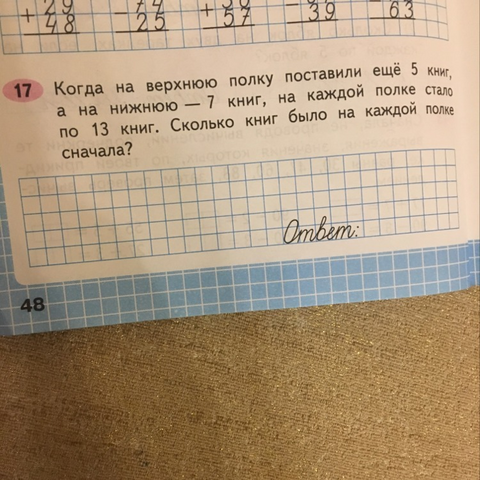 + 29 − 74 + 57 − 39 − 63
48 25
17 Когда на верхнюю полку поставили ещё 5 книг,
а на нижнюю — 7 книг, на каждой полке стало
по 13 книг. Сколько книг было на каждой полке
сначала?
Ответ:
48